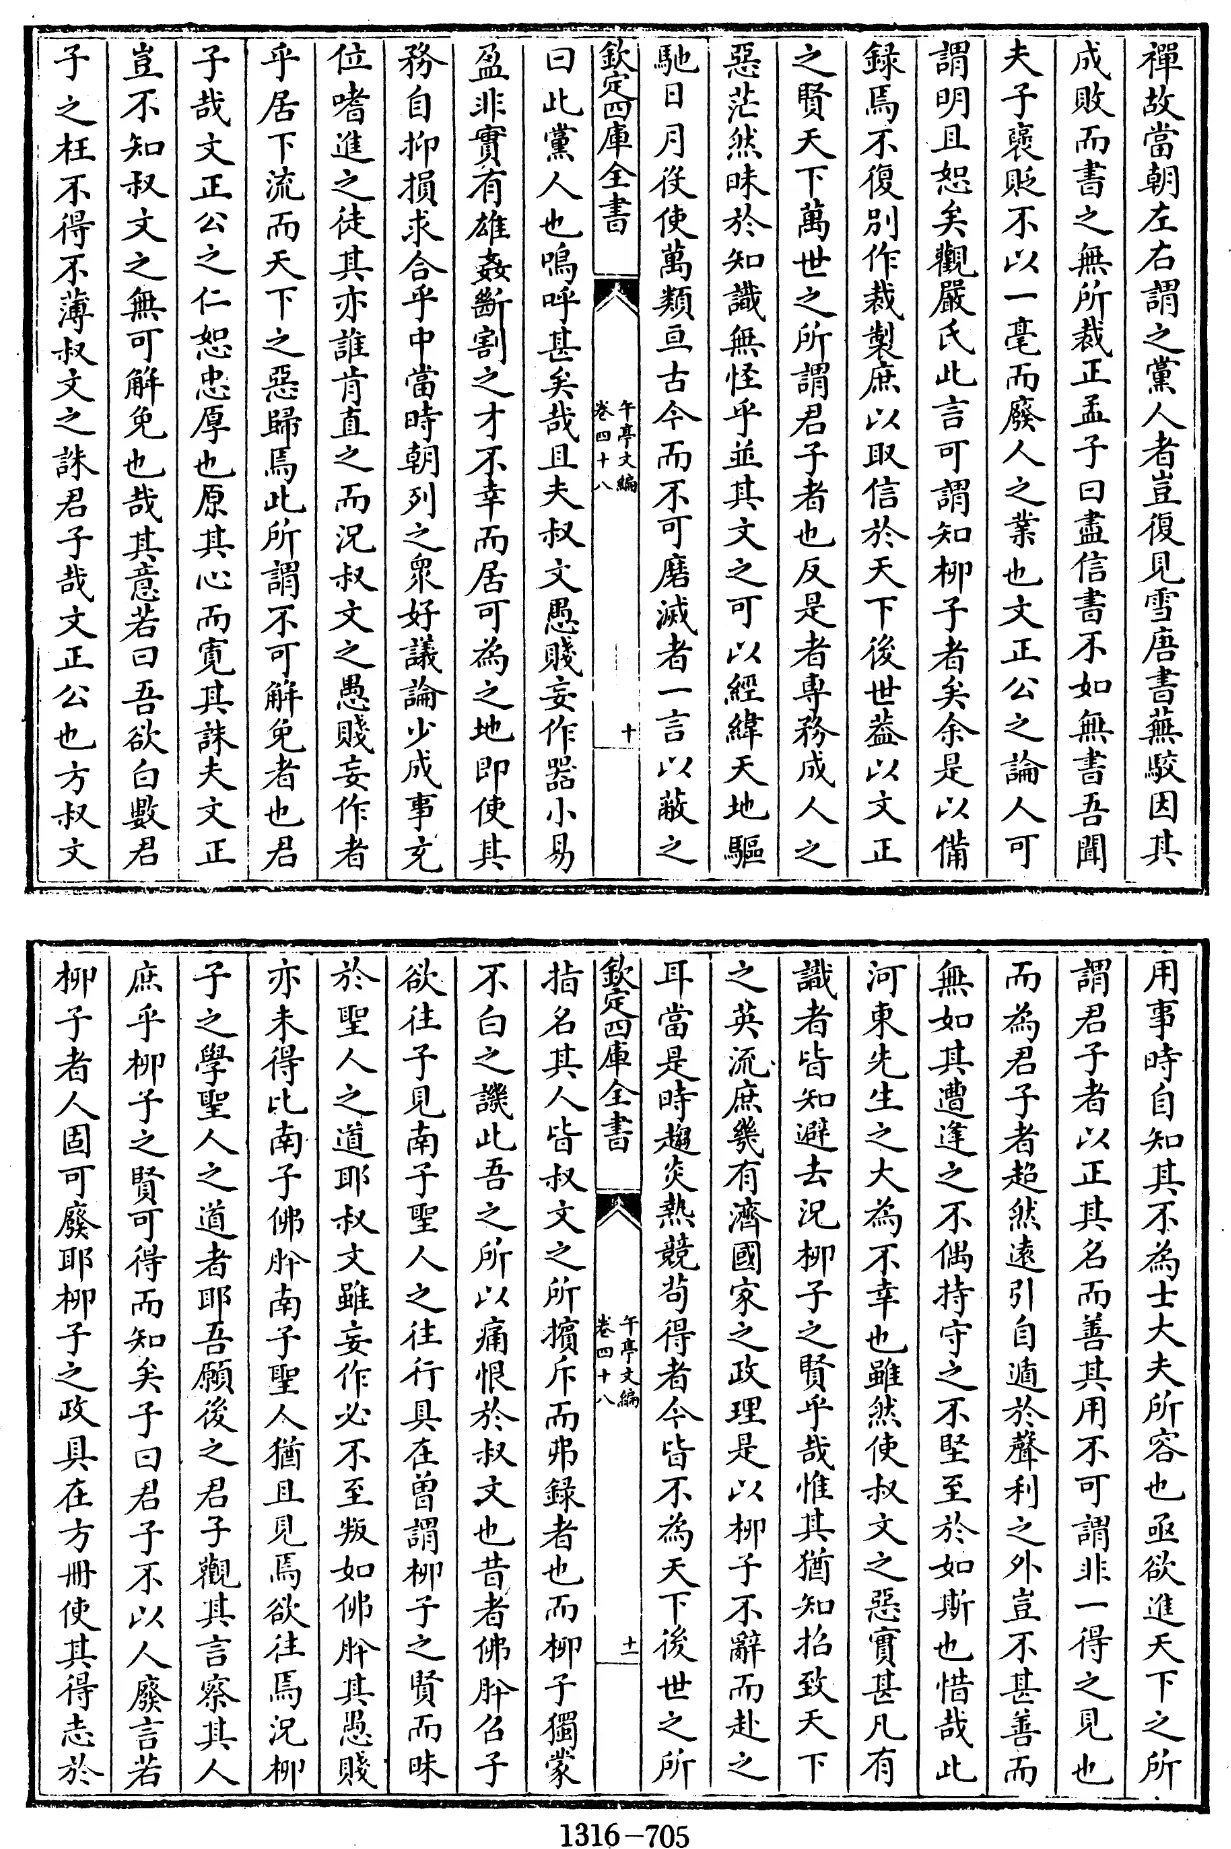 禪故當朝左右謂之黨人者豈復見雪唐書蕪駁因其
成敗而書之無所裁正孟子曰盡信書不如無書吾聞
夫子襃貶不以一毫而廢人之業也文正公之論人可
謂明且恕矣觀嚴氏此言可謂知柳子者矣余是以備
録焉不復別作裁製庶以取信於天下後世葢以文正
之賢天下萬世之所謂君子者也反是者專務成人之
惡茫然昧於知識無怪乎並其文之可以經緯天地驅
馳日月役使萬類亘古今而不可磨滅者一言以蔽之
欽定四庫全書
午亭文編
卷四十八
十
曰此黨人也嗚呼甚矣哉且夫叔文愚賤妄作器小易
盈非實有雄姦斷割之才不幸而居可為之地即使其
務自抑損求合乎中當時朝列之衆好議論少成事冘
位嗜進之徒其亦誰肯直之而況叔文之愚賤妄作者
乎居下流而天下之惡歸焉此所謂不可解免者也君
子哉文正公之仁恕忠厚也原其心而寛其誅夫文正
豈不知叔文之無可解免也哉其意若曰吾欲白數君
子之枉不得不薄叔文之誅君子哉文正公也方叔文
用事時自知其不為士大夫所容也亟欲進天下之所
謂君子者以正其名而善其用不可謂非一得之見也
而為君子者超然遠引自遁於聲利之外豈不甚善而
無如其遭逢之不偶持守之不堅至於如斯也惜哉此
河東先生之大為不幸也雖然使叔文之惡實甚凡有
識者皆知避去況柳子之賢乎哉惟其猶知招致天下
之英流庶幾有濟國家之政理是以柳子不辭而赴之
耳當是時趨炎熱競苟得者今皆不為天下後世之所
欽定四庫全書
午亭文編
卷四十八
十一
指名其人皆叔文之所擯斥而弗録者也而柳子獨蒙
不白之譏此吾之所以痛恨於叔文也昔者佛肸召子
欲往子見南子聖人之往行具在曽謂柳子之賢而昧
於聖人之道耶叔文雖妄作必不至叛如佛肸其愚賤
亦未得比南子佛肸南子聖人猶且見焉欲往焉況柳
子之學聖人之道者耶吾願後之君子觀其言察其人
庶乎柳子之賢可得而知矣子曰君子不以人廢言若
柳子者人固可廢耶柳子之政具在方冊使其得志於
1316-705